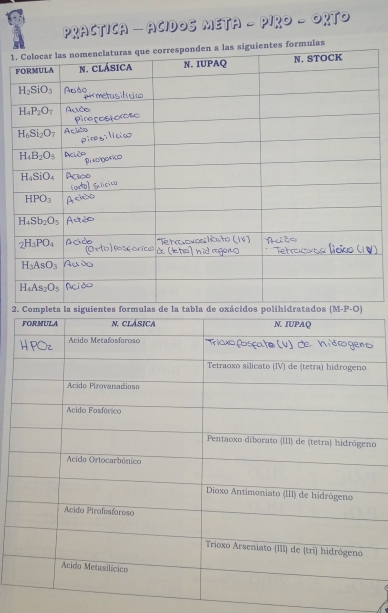 PRACTICA - ACIDOS META - PIRO - ORTO
1. Colocar las nomenclaturas que corresponden a las siguientes formulas
FORMULA N. CLÁSICA N. IUPAQ N. STOCK
H₂SiO₃ Acido metasilicico
H₄P₂O₇ Acido pirofosforoso
H₆Si₂O₇ Acido pirosilicico
H₄B₂O₅ Acido piroborico
H₄SiO₄ Acido (orto) silicico
HPO₃ Acido
H₄Sb₂O₅ Acido
2H₃PO₄ Acido (Orto) fosforico Tetraoxosilicato (IV) de (tetra) hidrogeno Acido Tetraoxosilicico (IV)
H₃AsO₃ Acido
H₄As₂O₅ Acido
2. Completa la siguientes formulas de la tabla de oxácidos polihidratados (M-P-O)
FORMULA N. CLÁSICA N. IUPAQ
HPO₂ Acido Metafosforoso Trioxofosfato (V) de hidrogeno
Tetraoxo silicato (IV) de (tetra) hidrogeno
Acido Pirovanadioso
Acido Fosfórico
Pentaoxo diborato (III) de (tetra) hidrógeno
Acido Ortocarbónico
Dioxo Antimoniato (III) de hidrógeno
Acido Pirofosforoso
Trioxo Arseniato (III) de (tri) hidrógeno
Acido Metasilícico